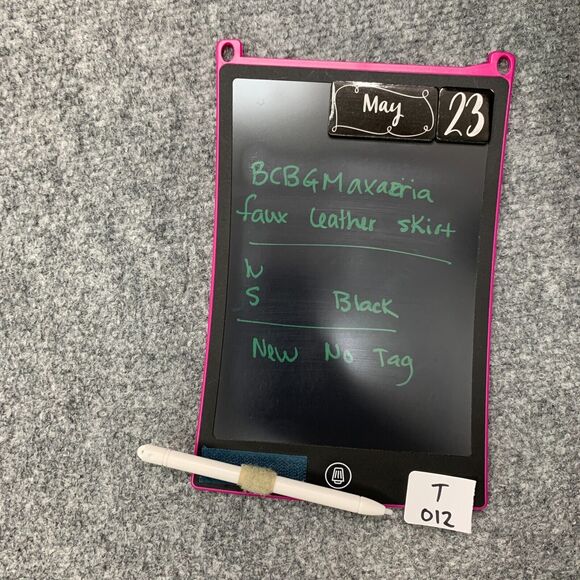 May 23
BCBGMaxazria
faux leather skirt
N
S Black
New No Tag
T
012